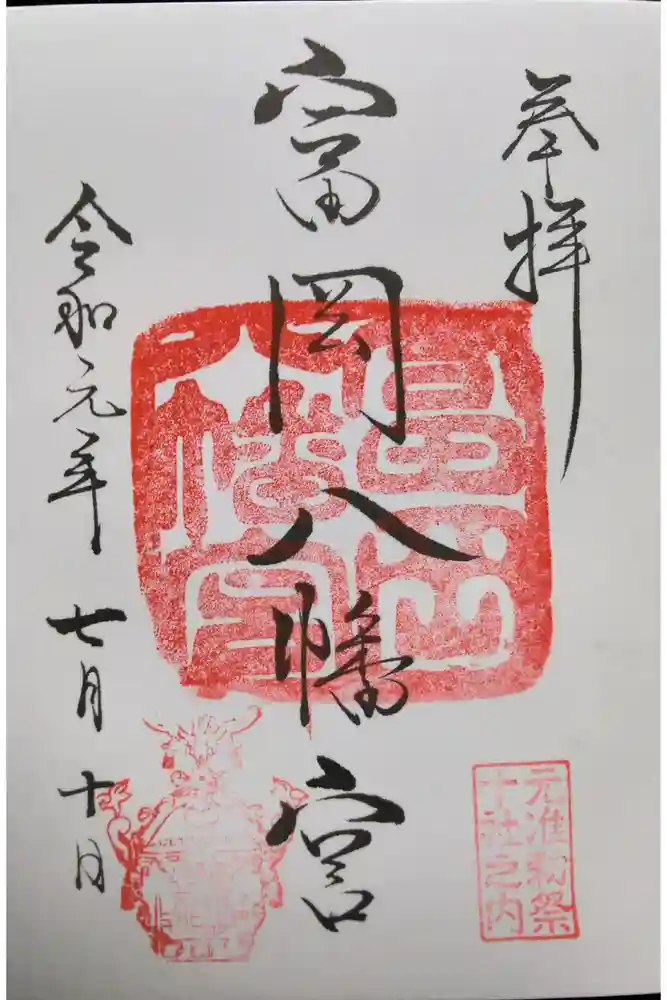 奉拝
富岡八幡宮
令和元年七月十日
元准勅祭
十社之内